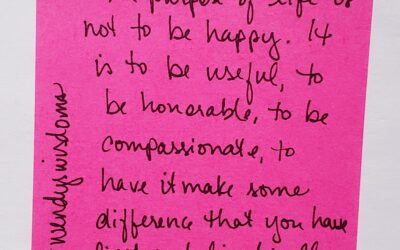 purpose of life is
not to be happy. It
is to be useful, to
be honorable, to be
compassionate, to
have it make some
difference that you have
wendyswisdoms